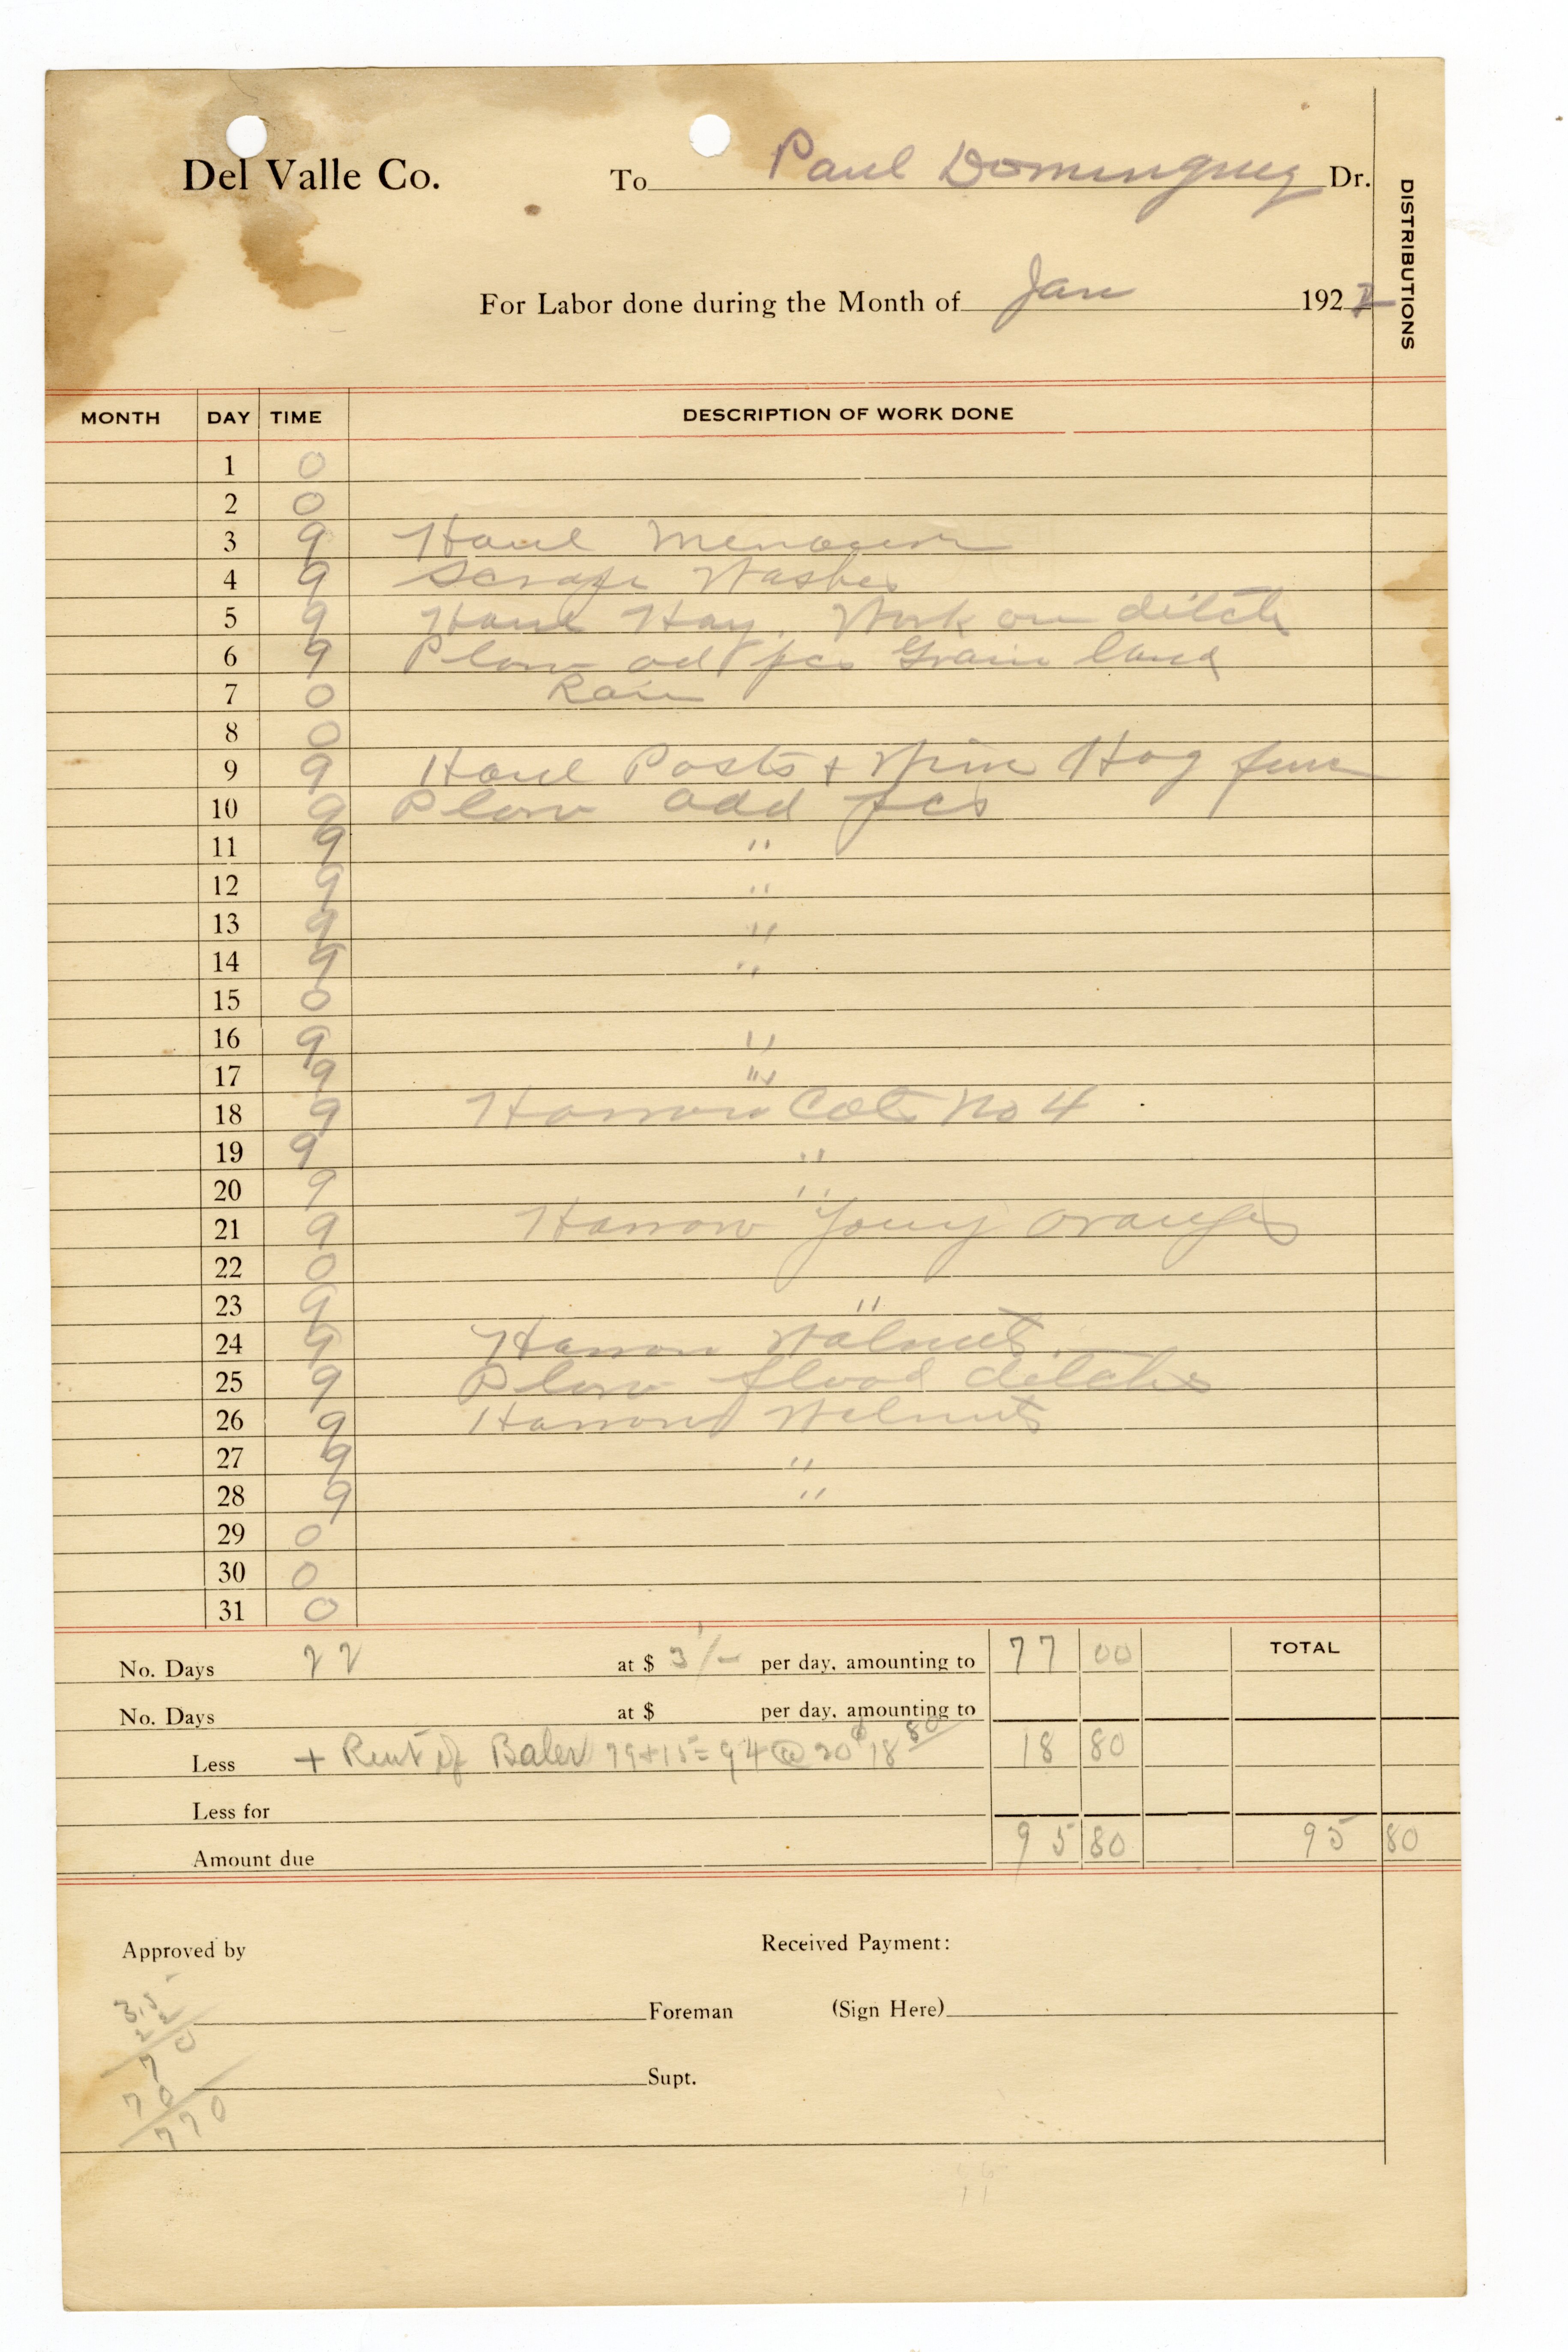 Del Valle Co. To Paul Dominguez Dr.
DISTRIBUTIONS
For Labor done during the Month of Jan 1922
MONTH DAY TIME DESCRIPTION OF WORK DONE
1 0
2 0
3 9 Haul
4 9 Scrape Washes
5 9 Haul Hay. Work on ditch
6 9 Plow od pcs Grain land
7 0 Rain
8 0
9 9 Haul Posts + Wire Hog
10 9 Plow odd pcs
11 9 "
12 9 "
13 9 "
14 9 "
15 0
16 9 "
17 9 "
18 9 Harrow Cots No 4
19 9 "
20 9 "
21 9 Harrow Young oranges
22 0
23 9 "
24 9 Harrow Walnuts
25 9 Plow flood ditches
26 9 Harrow Walnuts
27 9 "
28 9 "
29 0
30 0
31 0
No. Days 22 at $ 3 per day, amounting to 77 00 TOTAL
No. Days at $ per day, amounting to
Less + Rent of Baler 79+15=94 @ 20¢ 18 80 18 80
Less for
Amount due 95 80 95 80
Approved by Received Payment:
3.5
22
Foreman (Sign Here)
70
70
Supt.
770